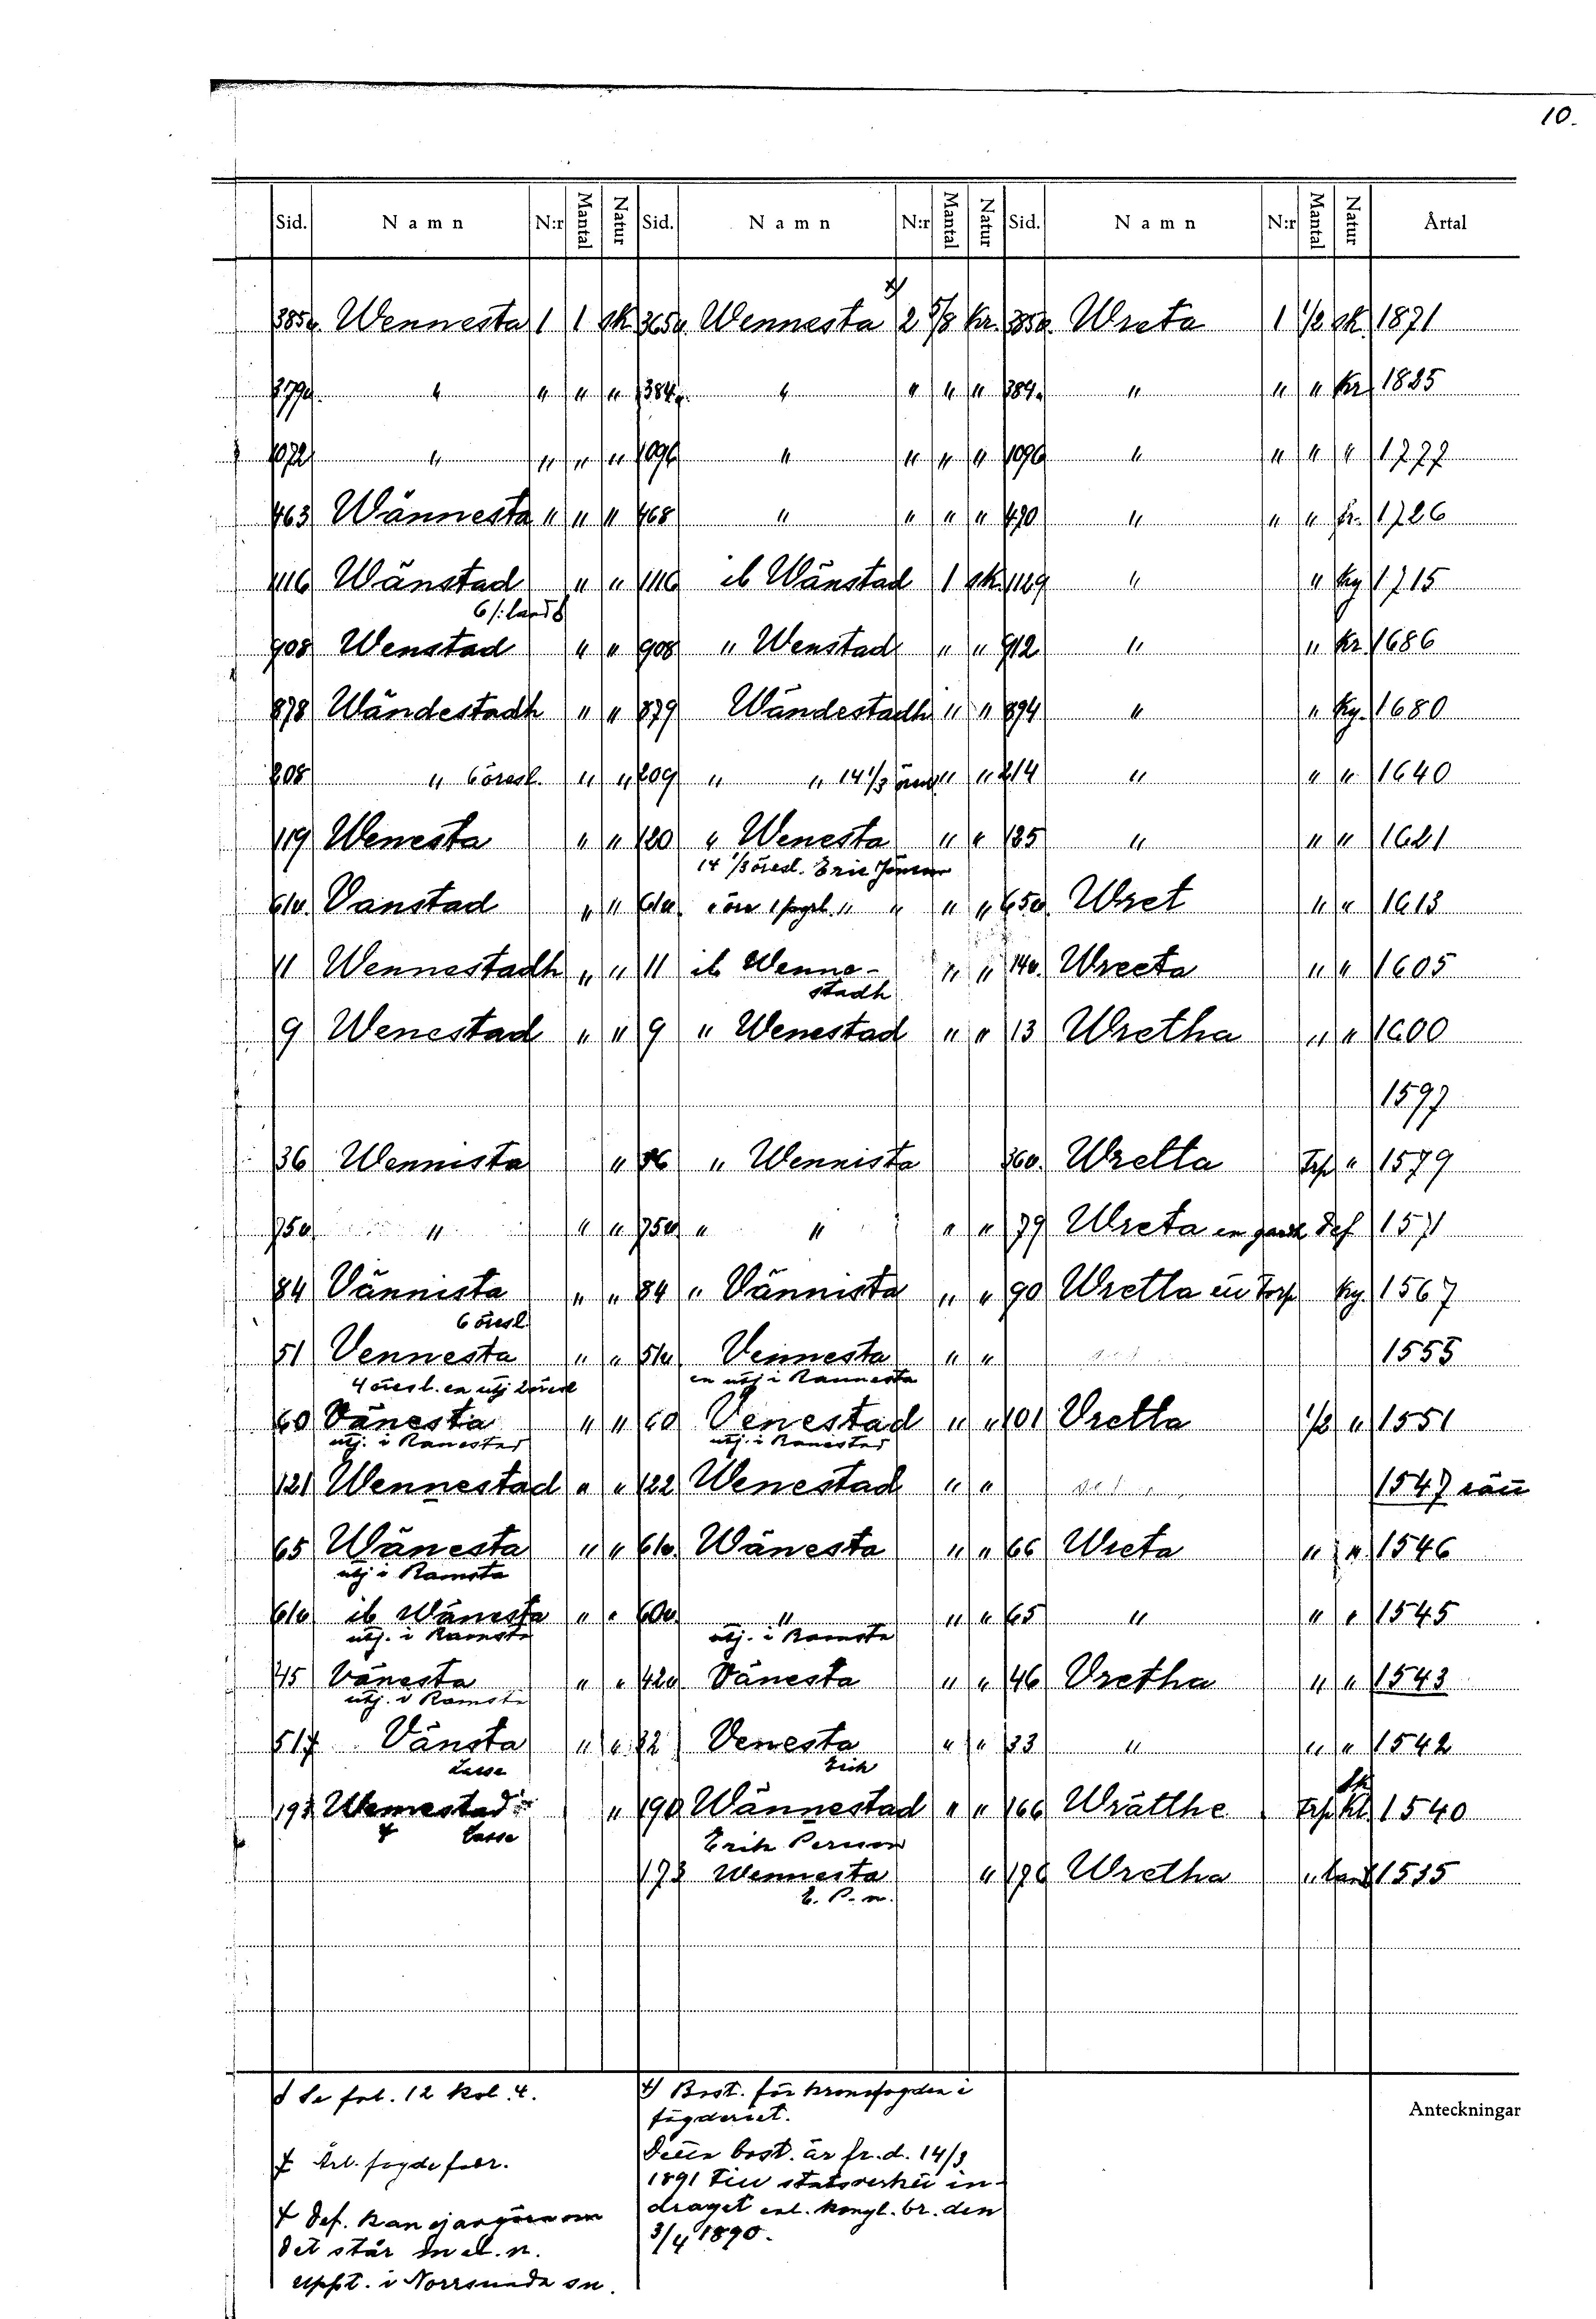 10.
Sid. Namn N:r Mantal Natur Sid. Namn N:r Mantal Natur Sid. Namn N:r Mantal Natur Årtal
385v. Wennesta 1 1 sk 365v Wennesta 2 5/8 Kr. 385v. Wreta 1 1/2 sk. 1871
379v. " " " " 384v. " " " " 384v " " " Kr 1825
1072 " " " " 1096 " " " " 1096 " " " " 1777
463 Wännesta " " " 468 " " " " 470 " " " kr. 1726
1116 Wänstad " " 1116 ib Wänstad 1 sk. 1129 " " kg 1715
6/: land
908 Wenstad " " 908 " Wenstad " " 912 " " Kr. 1686
878 Wändestadh " " 879 Wändestadh " " 894 " " kg. 1680
208 " 6 öresl. " " 209 " " 14 1/3 " " 214 " " " 1640
119 Wenesta " " 120 " Wenesta " " 125 " " " 1621
14 1/3 öresl. Eric
61v. Vanstad " " 61v. " " " " " 65v Wret " " 1613
11 Wennestadh " " 11 ib Wenne- " " 14v. Wreeta " " 1605
stadh
9 Wenestad " " 9 " Wenestad " " 13 Wretha " " 1600
1597
36 Wennista " 36 " Wennista 36v. Wretta Trp " 1579
75v " " " 75v " " " " 79 Wreta en gard Def 1571
84 Vännista " " 84 " Vännista " " 90 Wretta en Torp Kg. 1567
6 öresl.
51 Vennesta " " 51v Vennesta " " 1555
4 öresl. en utj 2 öresl en utj i Rannesta
60 Vänesta " " 60 Venestad " " 101 Vretta 1/2 " 1551
utj. i Ranestad utj. i Ranestad
121 Wennestad " " 122 Wenestad " " 1547
65 Wänesta " " 61v. Wänesta " " 66 Wreta " " 1546
utj i Ramsta
61v ib Wänesta " " 60v " " " 65 " " " 1545
utj. i Ramsta utj. i Ramsta
45 Vänesta " " 42v Vänesta " " 46 Vretha " " 1543
utj. i Ramsta
517 Vänsta " " 32 Venesta " " 33 " " " 1542
Lasse Erich
193 Wennestad " 190 Wännestad " " 166 Wrätthe Trp Kl. 1540
Lasse Erik Person
173 Wennesta " 176 Wretha " 1535
E. P-n.
Se fol. 12 kol. 4.
Årl. fogde
Def. Kan ej avgöra om
det står
uppt. i Norrsunda sn.
Bost. för kronofogden i
fögderiet.
Detta bost. är fr. d. 14/3
1891 till statsverket in-
draget enl. kongl. br. den
3/4 1890.
Anteckningar